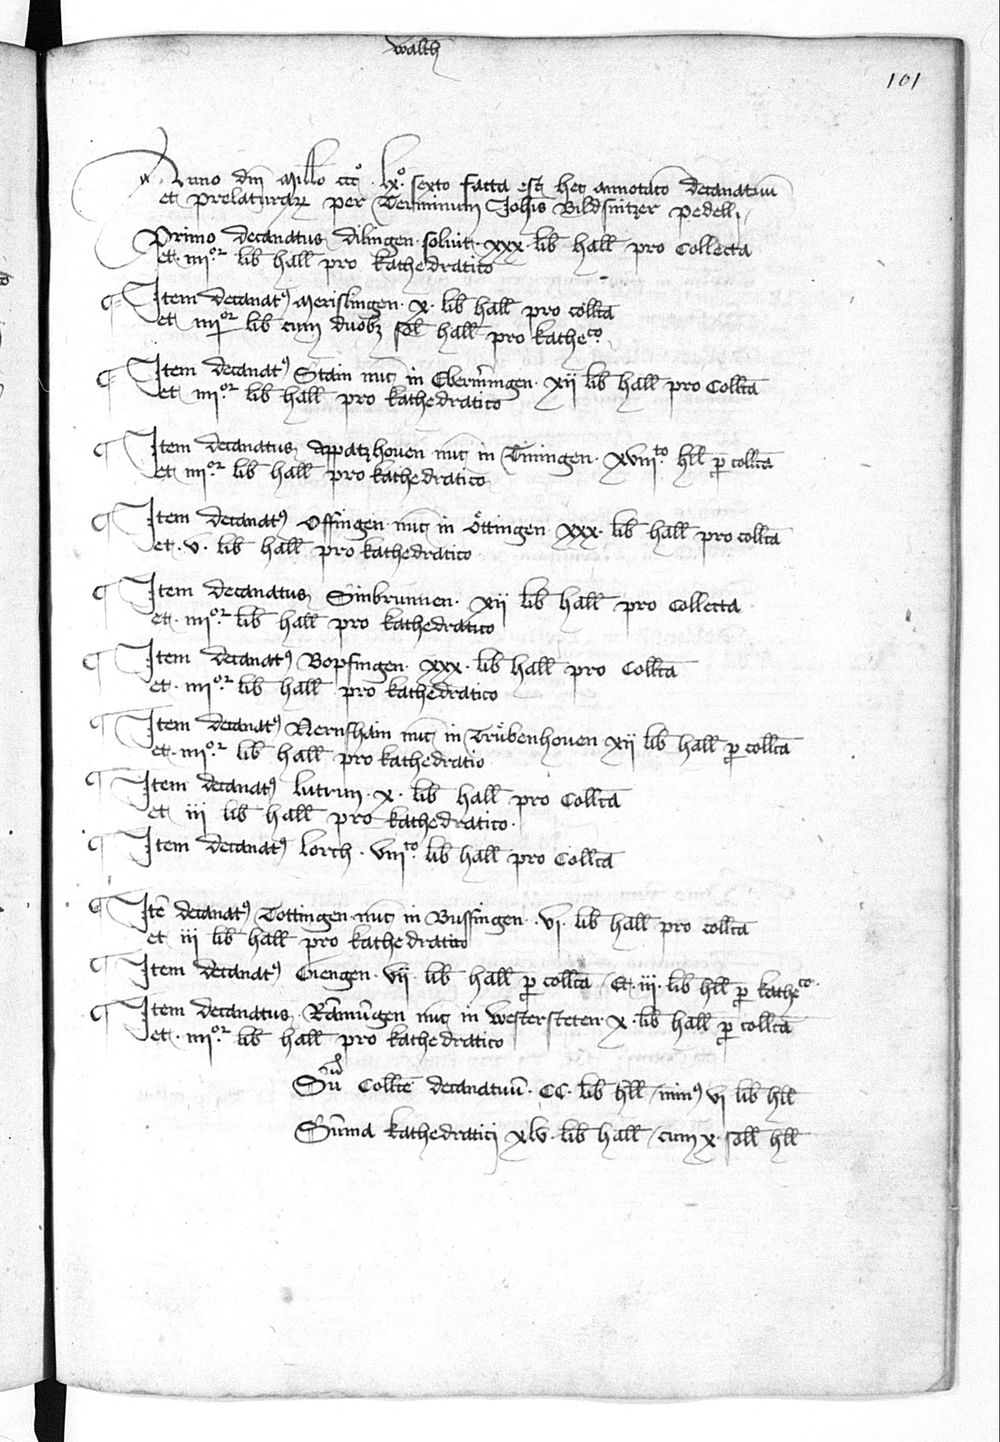 walth
101
Anno dni Millo ccco lxo sexto facta est hec annotaco decanatuu
et prelaturar per Terminum Johis Bildsnitzer pedelli
Primo decanatus dilingen soluit xxx lib hall pro Collecta
et iiiior lib hall pro kathedratico
¶ Item decanat9 Merislingen x lib hall pro collca
et iiiior lib cum duobz sol hall pro katheco
¶ Item decanat9 Stain nuc in Ebermingen xii lib hall pro Collca
et iiiior lib hall pro kathedratico
¶ Item decanatus Appatzhouen nuc in Tiningen xviiito hll p collca
et iiiior lib hall pro kathedratico
¶ Item decanat9 Offingen nuc in öttingen xxx lib hall pro collca
et v lib hall pro kathedratico
¶ Item decanatus Sinbrunnen xii lib hall pro Collecta
et iiiior lib hall pro kathedratico
¶ Item decanat9 Bopfingen xxx lib hall pro Collca
et iiiior lib hall pro kathedratico
¶ Item decanat9 Nernshain nuc in Trübenhouen xii lib hall p collca
et iiiior lib hall pro kathedratio
¶ Item decanat9 lutrun x lib hall pro Collca
et iii lib hall pro kathedratico
¶ Item decanat9 lorch viiito lib hall pro Collca
¶ Ite decanat9 Tottingen nuc in Bussingen vi lib hall pro collca
et iii lib hall pro kathedratico
¶ Item decanat9 Giengen vii lib hall p collca / Et iii lib hll p katheco
¶ Item decanatus Ramingen nuc in westersteten x lib hall p collca
et iiiior lib hall pro kathedratico
Su Collce decanatuu CC lib hll / min9 vi lib hll
Suma kathedratici xlv lib hall / cum x soll hll